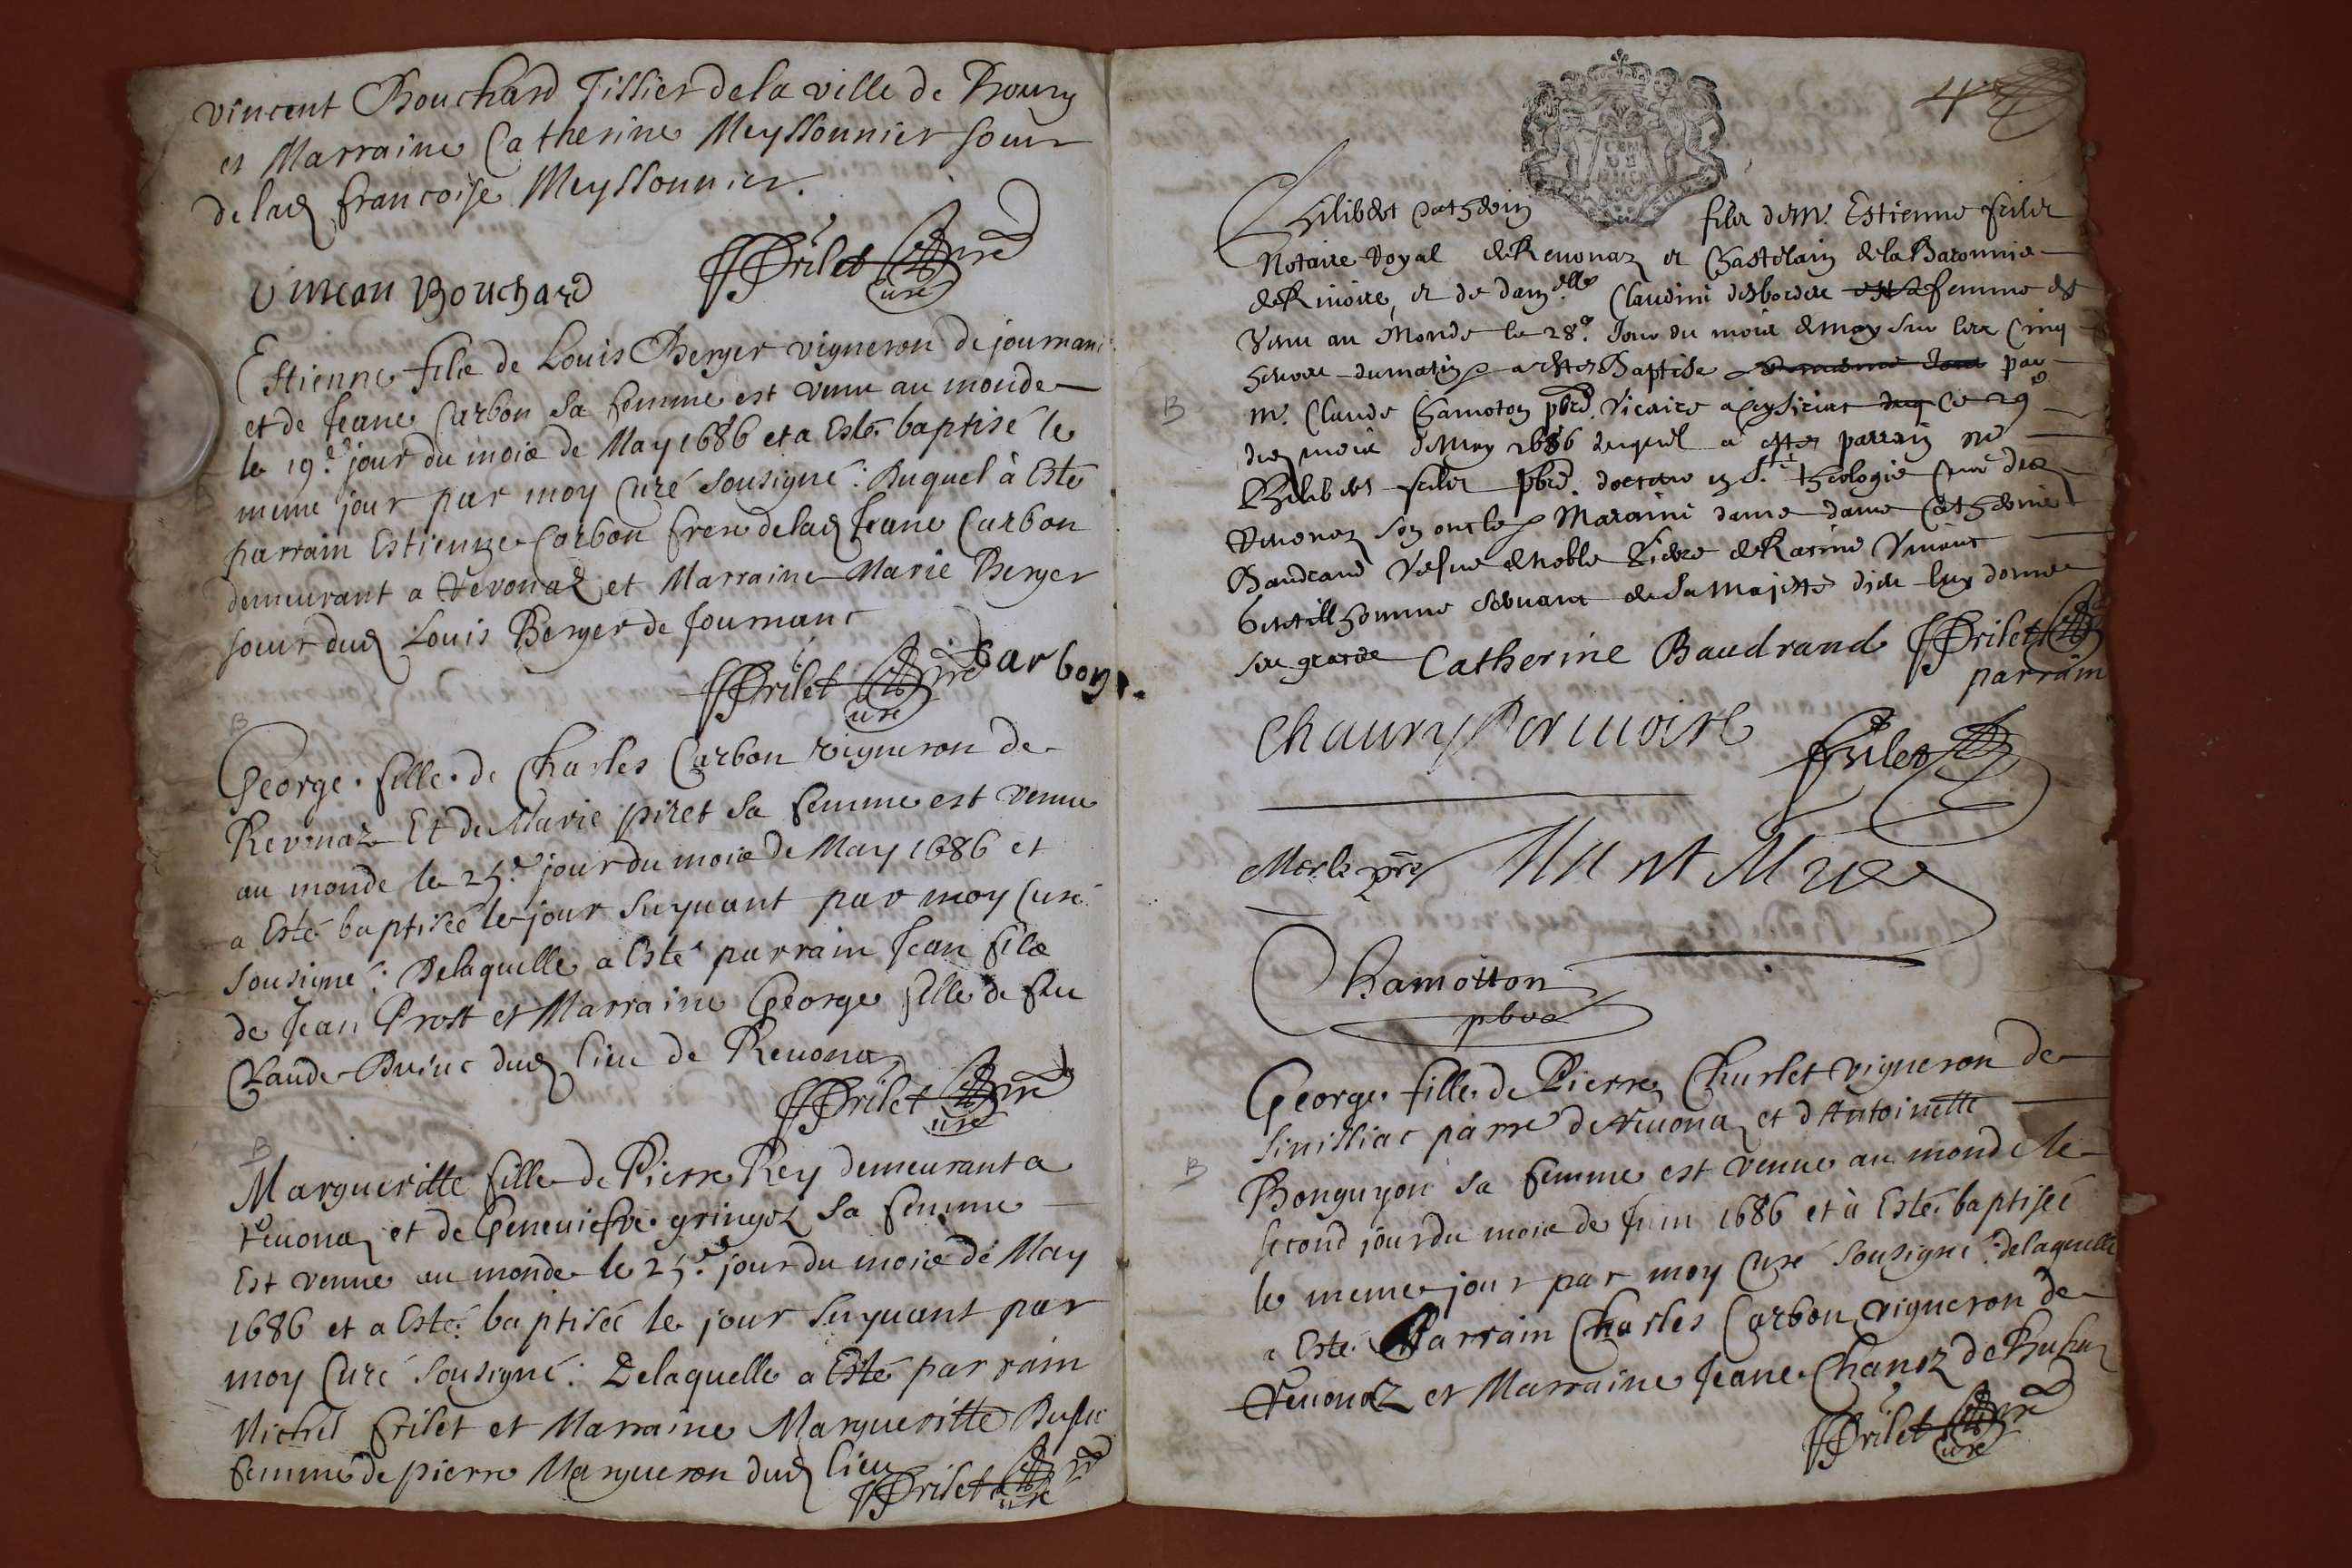 Vincent Bouchard Tissier de la ville de Bourg
et Marraine Catherine Meyssonnier soeur
de lad françoise Meyssonnier.
FFrilet Curé
Vincan Bouchard
Estienne fils de Louis Berger vigneron de journans
et de Jeane Carbon sa femme est venu au monde
le 19.e jour du mois de May 1686 et a Esté baptisé le
meme jour par moy Curé sousigné: Duquel à Esté
parrain Estienne Carbon frere de lad Jeane Carbon
demeurant a Revonaz et Marraine Marie Berger
soeur dud Louis Berger de Journans
Carbon.
FFrilet Curé
George fille de Charles Carbon vigneron de
Revonaz Et de Marie piret sa femme est venue
au monde le 25.e jour du mois de May 1686 et
a Esté baptisée le jour suyuant par moy Curé
sousigné: Delaquelle a Esté parrain Jean fils
de Jean Prost et Marraine George fille de feu
Claude dud lieu de Reuonaz
FFrilet Curé
Margueritte fille de Pierre Rey demeurant a
Reuonaz et de Geneuiefve gringoz sa femme
Est venue au monde le 25.e jour du mois de May
1686 et a Esté baptisée le jour suyuant par
moy Curé sousigné: Delaquelle a Esté parrain
Michel frilet et Marraine Margueritte
femme de pierre Margueron dud lieu
FFrilet Curé
4
filz de Mr. Estienne frilet
Notaire Royal de Reuonaz et Chastelain de la Baronnie
de Riuoire et de dam.elle Claudine desbordes sa femme est
Venu au Monde le 28.e Jour du mois de may sur les Cinq
heures du matin a este Baptise par
Mr. Claude Chamoton pbre. Vicaire a ce 29
du mois de May 1686 duquel a este parrain Me
Philibert frilet pbre. docteur en Ste. theologie Curé de
Reuonaz son oncle Maraine dame dame Catherine
Baudrand Vefue de Noble de Racine Viuant
Gentilhomme seruant de sa Majeste dieu luy donne
sa grace Catherine Baudrand FFrilet
parrain
frilet
Merle pre
Chamotton
pbre
George fille de Pierre Churlet vigneron de
Sinissiac parre de Reuonaz et d'Antoinette
Bonguyon sa femme est venue au monde le
second jour du mois de Juin 1686 et à Esté baptisée
le meme jour par moy Curé sousigné: delaquelle
a Esté Parrain Charles Carbon vigneron de
Reuonaz et Marraine Jeane Chanez de
FFrilet Curé